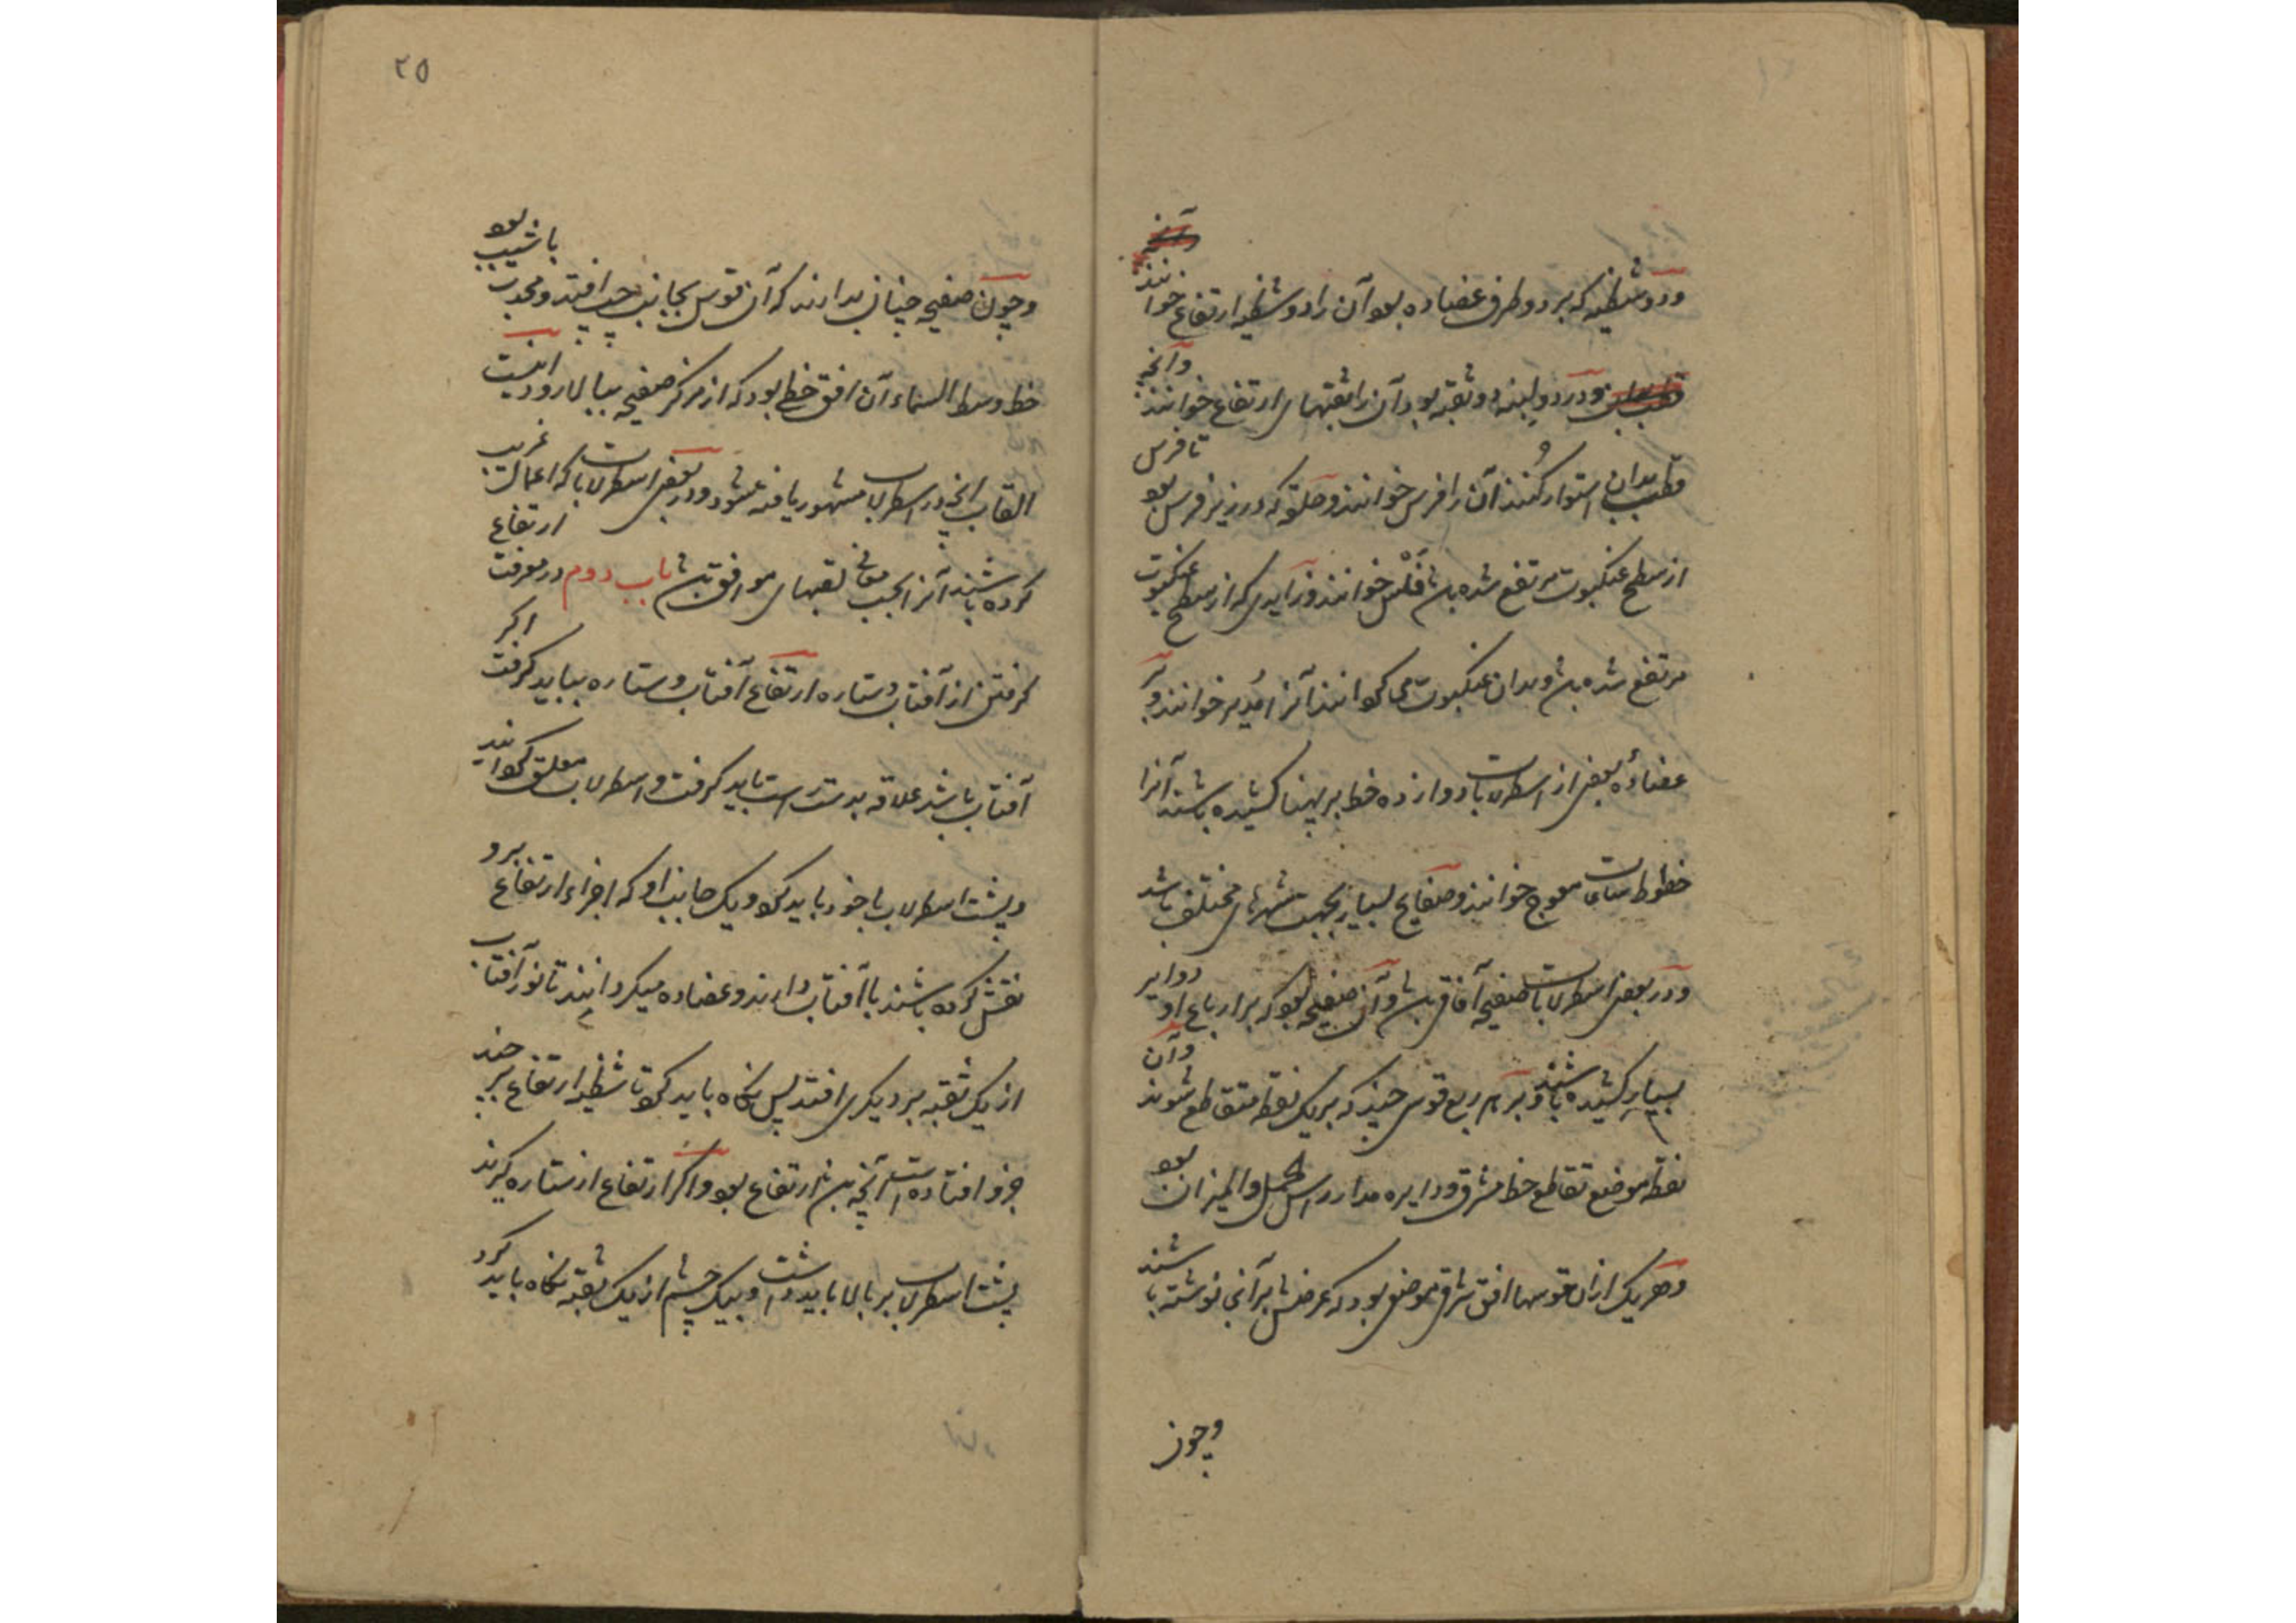 ودو شظیه که بر دو طرف عضاده بود آن را دو شظیه ارتفاع خوانند
ودر دو لبنه دو ثقبه بود آن را ثقبهای ارتفاع خوانند وآنچه
قطب بدان استوار کنند آن را فرس خوانند وحلقه که در زیر فرس بود تا فرس
از سطح عنکبوت مرتفع شده باشد فَلْس خوانند وزایدی که از سطح عنکبوت
مرتفع شده باشد وبدان عنکبوت می کردانند آنرا مُدیر خوانند وبر
عضادهٔ بعضی از اسطرلابات دوازده خط بر پهنا کشیده باشند آنرا
خطوط ساعات معوج خوانند وصفایح بسیار بجهت شهرهای مختلف باشد
ودر بعضی اسطرلابات صفیحه آفاقی باشد وآن صفیحه بود که بر ارباع او دوایر
بسیار کشیده باشند وبر هر ربع قوسی چند که بر یک نقطه متقاطع شوند وآن
نقطه موضع تقاطع خط مشرق ودایره مدار راس الحمل والمیزان بود
وهر یک از آن قوسها افق شرقی موضعی بود که عرضش بر آنجا نوشته باشند
وچون
۲۵
وچون صفیحه چنان بدارند که آن قوس بجانب چپ افتد ومحدب با شیب بود
خط وسط السماء آن افق خطی بود که از مرکز صفیحه ببالا رود اینست
القاب آنچه در اسطرلاب مشهور یافته میشود ودر بعضی اسطرلابات که اعمال غریب
کرده باشند آنرا بحسب لقبهای موافق باشد باب دوم در معرفت ارتفاع
کرفتن از آفتاب وستاره ارتفاع آفتاب وستاره بباید کرفت اکر
آفتاب باشد علاقه بدست راست باید کرفت واسطرلاب معلق کردانید
وپشت اسطرلاب با خود باید کرد ویک جانب او که اجزاء ارتفاع برو
نقش کرده باشند با آفتاب دارند وعضاده میکردانند تا نور آفتاب
از یک ثقبه بر دیکری افتد پس نکاه باید کرد تا شظیه ارتفاع بر چند
جزو افتاده است آنچه باشد ارتفاع بود واکر ارتفاع از ستاره کیرند
پشت اسطرلاب بر بالا باید داشت وبیک چشم از یک ثقبه نکاه باید کرد